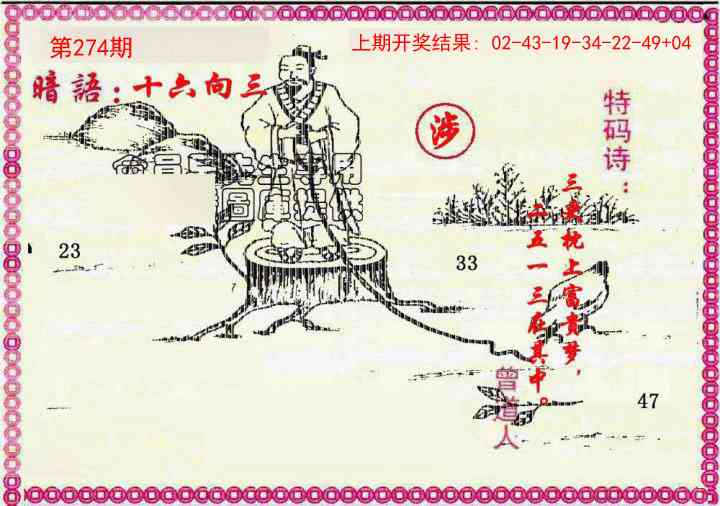 第274期
上期开奖结果：02-43-19-34-22-49+04
暗語：十六向三
涉
特码诗：
三更枕上富貴梦，
二五一三在其中。
曾道人
23
33
47